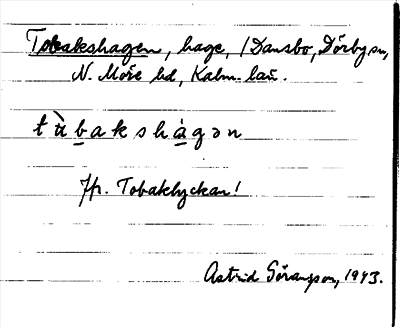 Tobakshagen, hage, /Dansbo, Dörby sn,
N. Möre hd, Kalm. län.
tùbakshágən
Jfr. Tobaklyckan!
Astrid Göransson, 1943.